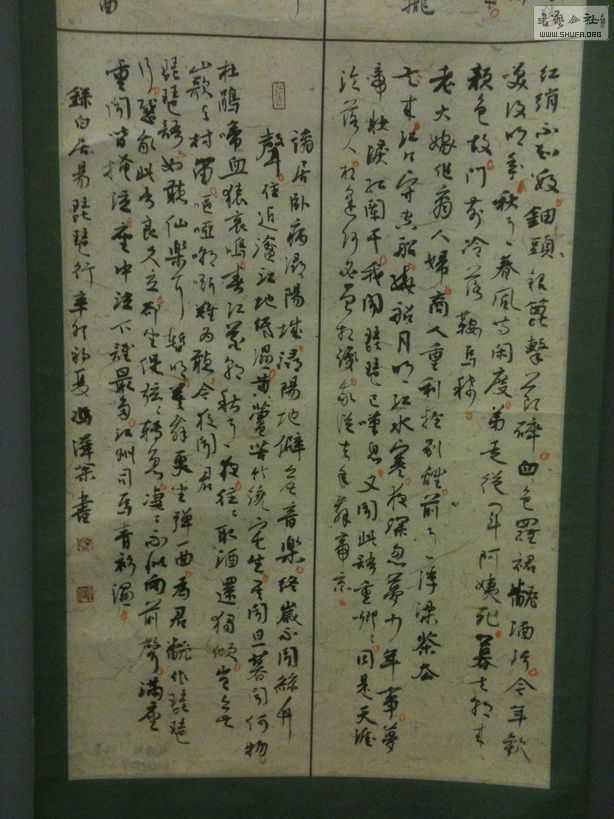 書藝公社
WWW.SHUFA.ORG
紅綃不知數鈿頭銀篦擊節碎血色羅裙翻酒污今年歡
笑復明年秋月春風等閑度弟走從軍阿姨死暮去朝來
顏色故門前冷落鞍馬稀
老大嫁作商人婦商人重利輕別離前月浮梁買茶去
去來江口守空船繞船月明江水寒夜深忽夢少年事夢
啼妝淚紅闌干我聞琵琶已嘆息又聞此語重唧唧同是天涯
淪落人相逢何必曾相識我從去年辭帝京
謫居臥病潯陽城潯陽地僻無音樂終歲不聞絲竹
聲住近湓江地低濕黃蘆苦竹繞宅生其間旦暮聞何物
杜鵑啼血猿哀鳴春江花朝秋月夜往往取酒還獨傾豈無
山歌與村笛嘔啞嘲哳難為聽今夜聞君
琵琶語如聽仙樂耳暫明莫辭更坐彈一曲為君翻作琵琶
行感我此言良久立卻坐促弦弦轉急淒淒不似向前聲滿座
重聞皆掩泣座中泣下誰最多江州司馬青衫濕
錄白居易琵琶行辛卯初夏馮澤書